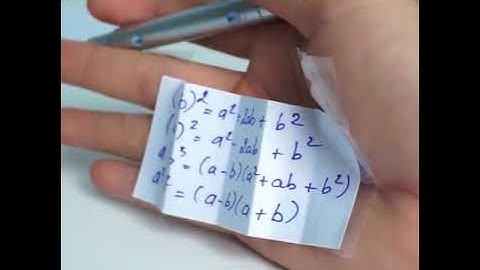 (b)² = a² + 2ab + b²
( )² = a² - 2ab + b²
a ³ = (a-b)(a² + ab + b²)
a² = (a-b)(a+b)